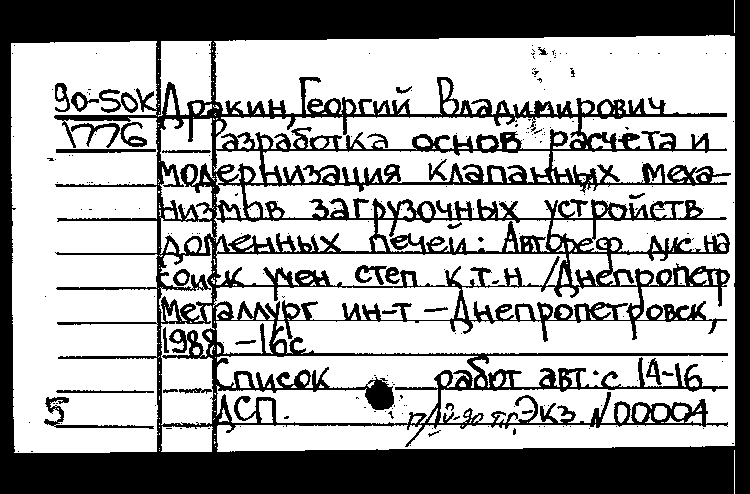 90-50К Дракин, Георгий Владимирович
1776 Разработка основ расчета и
модернизация клапанных меха-
низмов загрузочных устройств
доменных печей: Автореф. дис. на
соиск. учен. степ. к.т.н. /Днепропетр
Металлург ин-т. – Днепропетровск,
1988 – 16с.
Список работ авт.: с 14-16.
5 ДСП. Экз. N 00004